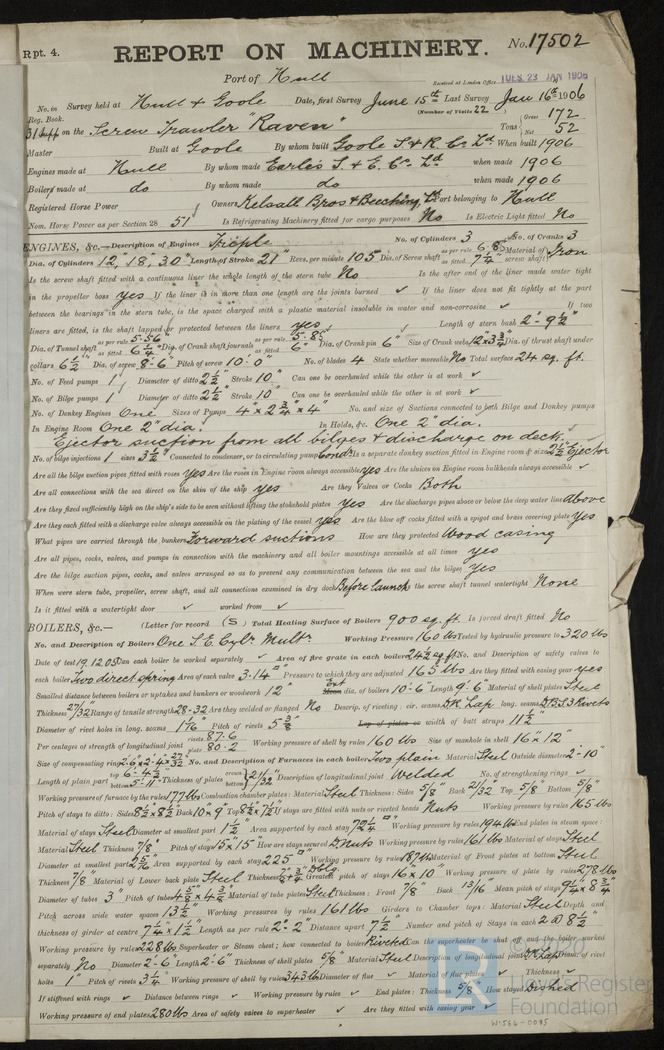 Rpt. 4. REPORT ON MACHINERY. No. 17502
Port of Hull Received at London Office TUES. 23 JAN 1906
No. in Survey held at Hull & Goole Date, first Survey June 15th Last Survey Jan 16th 1906
Reg. Book. (Number of Visits 22)
31 Supp on the Screw Trawler "Raven" Tons Gross 172 Net 52
Master Built at Goole By whom built Goole S. & R. Co Ld When built 1906
Engines made at Hull By whom made Earle's S. & E. Co Ld when made 1906
Boilers made at do By whom made do when made 1906
Registered Horse Power Owners Kelsall Bros & Beeching Ld Port belonging to Hull
Nom. Horse Power as per Section 28 51 Is Refrigerating Machinery fitted for cargo purposes No Is Electric Light fitted No
ENGINES, &c.— Description of Engines Triple No. of Cylinders 3 No. of Cranks 3
Dia. of Cylinders 12, 18, 30 Length of Stroke 21" Revs. per minute 105 Dia. of Screw shaft as per rule 6.8 as fitted 7 1/4" Material of screw shaft Iron
Is the screw shaft fitted with a continuous liner the whole length of the stern tube No Is the after end of the liner made water tight
in the propeller boss yes If the liner is in more than one length are the joints burned ✓ If the liner does not fit tightly at the part
between the bearings in the stern tube, is the space charged with a plastic material insoluble in water and non-corrosive ✓ If two
liners are fitted, is the shaft lapped or protected between the liners yes Length of stern bush 2'-9 1/2"
Dia. of Tunnel shaft as per rule 5.56" as fitted 6 1/4" Dia. of Crank shaft journals as per rule 5.85 as fitted 6" Dia. of Crank pin 6" Size of Crank webs 12"x3 3/4" Dia. of thrust shaft under
collars 6 1/2" Dia. of screw 8'-6" Pitch of screw 10'-0" No. of blades 4 State whether moveable No Total surface 24 sq. ft.
No. of Feed pumps 1 Diameter of ditto 2 1/2" Stroke 10" Can one be overhauled while the other is at work ✓
No. of Bilge pumps 1 Diameter of ditto 2 1/2" Stroke 10" Can one be overhauled while the other is at work ✓
No. of Donkey Engines One Sizes of Pumps 4" x 2 3/4" x 4" No. and size of Suctions connected to both Bilge and Donkey pumps
In Engine Room One 2" dia. In Holds, &c. One 2" dia.
Ejector suction from all bilges & discharge on deck.
No. of bilge injections 1 sizes 3 1/2" Connected to condenser, or to circulating pump Condr Is a separate donkey suction fitted in Engine room & size 2 1/2" Ejector
Are all the bilge suction pipes fitted with roses yes Are the roses in Engine room always accessible yes Are the sluices on Engine room bulkheads always accessible ✓
Are all connections with the sea direct on the skin of the ship yes Are they Valves or Cocks Both
Are they fixed sufficiently high on the ship's side to be seen without lifting the stokehold plates Yes Are the discharge pipes above or below the deep water line above
Are they each fitted with a discharge valve always accessible on the plating of the vessel yes Are the blow off cocks fitted with a spigot and brass covering plate yes
What pipes are carried through the bunkers Forward suctions How are they protected Wood casing
Are all pipes, cocks, valves, and pumps in connection with the machinery and all boiler mountings accessible at all times yes
Are the bilge suction pipes, cocks, and valves arranged so as to prevent any communication between the sea and the bilges yes
When were stern tube, propeller, screw shaft, and all connections examined in dry dock Before launch Is the screw shaft tunnel watertight None
Is it fitted with a watertight door ✓ worked from ✓
BOILERS, &c.— (Letter for record (S) Total Heating Surface of Boilers 900 sq. ft. Is forced draft fitted No
No. and Description of Boilers One S.E. Cylr Multr Working Pressure 160 lbs Tested by hydraulic pressure to 320 lbs
Date of test 19.12.05 Can each boiler be worked separately ✓ Area of fire grate in each boiler 24 1/2 sq. ft. No. and Description of safety valves to
each boiler Two direct spring Area of each valve 3.14" Pressure to which they are adjusted 165 lbs Are they fitted with easing gear yes
Smallest distance between boilers or uptakes and bunkers or woodwork 12" Ext Mean dia. of boilers 10'-6" Length 9'-6" Material of shell plates Steel
Thickness 27/32 Range of tensile strength 28-32 Are they welded or flanged No Descrip. of riveting: cir. seams DR Lap long. seams
Diameter of rivet holes in long. seams 1 1/16" Pitch of rivets 5 3/8" Lap of plates or width of butt straps 11 1/2"
Per centages of strength of longitudinal joint rivets 87.6 plate 80.2 Working pressure of shell by rules 160 lbs Size of manhole in shell 16" x 12"
Size of compensating ring 2'.6" x 2'.4" x 27/32" No. and Description of Furnaces in each boiler Two plain Material Steel Outside diameter 2'-10"
Length of plain part top 6'-4 1/2 bottom 5'-11" Thickness of plates crown bottom 21/32" Description of longitudinal joint Welded No. of strengthening rings ✓
Working pressure of furnace by the rules 177 lbs Combustion chamber plates: Material Steel Thickness: Sides 5/8" Back 21/32 Top 5/8" Bottom 5/8"
Pitch of stays to ditto: Sides 8 1/2 x 8 1/2 Back 10" x 9" Top 8 1/2 x 7 1/2 If stays are fitted with nuts or riveted heads Nuts Working pressure by rules 165 lbs
Material of stays Steel Diameter at smallest part 1 1/2" Area supported by each stay 72 1/4" Working pressure by rules 194 lbs End plates in steam space:
Material Steel Thickness 7/8" Pitch of stays 15" x 15" How are stays secured D. Nuts Working pressure by rules 161 lbs Material of stays Steel
Diameter at smallest part 2 5/16 Area supported by each stay 225" Working pressure by rules 187 lbs Material of Front plates at bottom Steel
Thickness 7/8" Material of Lower back plate Steel Thickness Greatest pitch of stays 16 x 10" Working pressure of plate by rules 278 lbs
Diameter of tubes 3" Pitch of tubes 4 5/8 x 4 3/8 Material of tube plates Steel Thickness: Front 7/8" Back 13/16" Mean pitch of stays 9 1/4 x 8 3/4
Pitch across wide water spaces 13 1/2" Working pressures by rules 161 lbs Girders to Chamber tops: Material Steel Depth and
thickness of girder at centre 7 1/4" x 1 1/2" Length as per rule 2'-2" Distance apart 7 1/2" Number and pitch of Stays in each 2 @ 8 1/2"
Working pressure by rules 228 lbs Superheater or Steam chest; how connected to boiler Riveted Can the superheater be shut off and the boiler worked
separately No Diameter 2'-6" Length 2'-6" Thickness of shell plates 5/8" Material Steel Description of longitudinal joint DR Lap Diam. of rivet
holes 1" Pitch of rivets 3 1/4" Working pressure of shell by rules 343 lbs Diameter of flue ✓ Material of flue plates ✓ Thickness ✓
If stiffened with rings ✓ Distance between rings ✓ Working pressure by rules ✓ End plates: Thickness 5/8" How stayed Dished
Working pressure of end plates 280 lbs Area of safety valves to superheater ✓ Are they fitted with easing gear ✓
Lloyd's Register
Foundation
W1566-0085